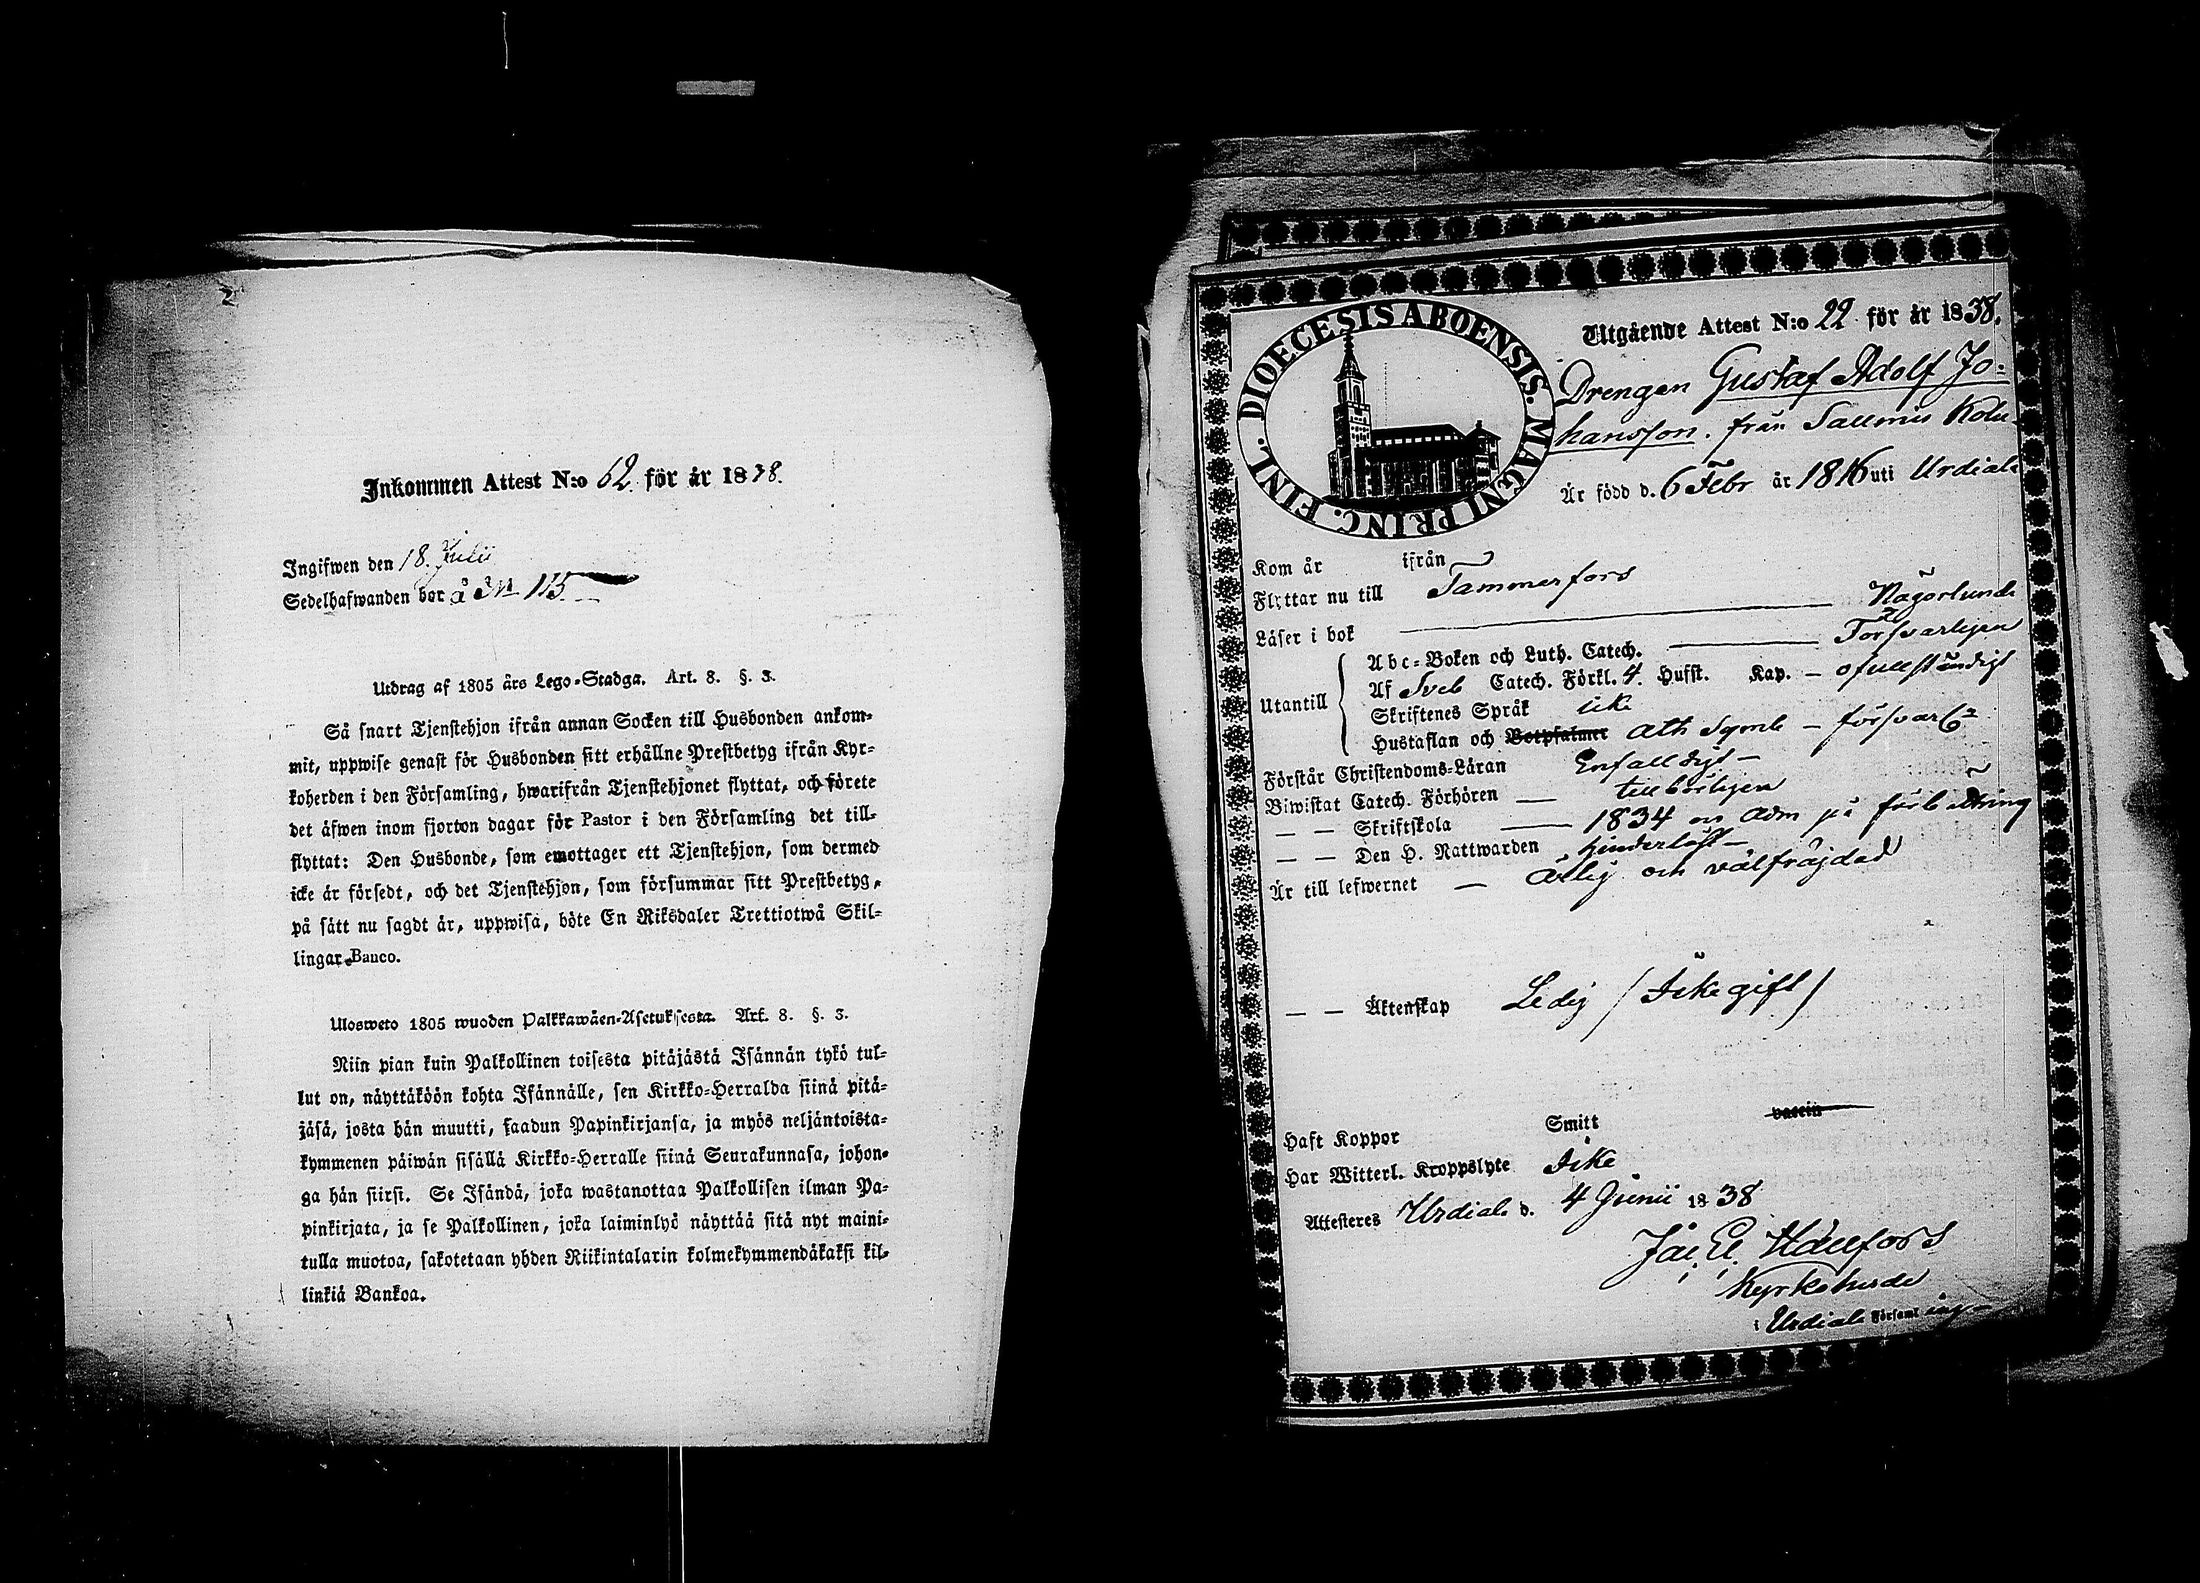 2
Inkommen Attest N:o 62. för år 1838.
Ingifwen den 18. Julii
Sedelhafwanden bor å 115
Utdrag af 1805 års Lego-Stadga. Art. 8. §. 3.
Så snart Tjenstehjon ifrån annan Socken till Husbonden ankom-
mit, uppwise genast för Husbonden sitt erhållne Prestbetyg ifrån Kyr-
koherden i den Församling, hwarifrån Tjenstehjonet flyttat, och förete
det äfwen inom fjorton dagar för Pastor i den Församling det till-
flyttat: Den Husbonde, som emottager ett Tjenstehjon, som dermed
icke är försedt, och det Tjenstehjon, som försummar sitt Prestbetyg,
på sätt nu sagdt är, uppwisa, böte En Riksdaler Trettiotwå Skil-
lingar Banco.
Ulosweto 1805 wuoden Palkkawäen-Asetuksesta. Art. 8. §. 3.
Niin pian kuin Palkollinen toisesta pitäjästä Isännän tykö tul-
lut on, näyttäköön kohta Isännälle, sen Kirkko-Herralda siinä pitä-
jäsä, josta hän muutti, saadun Papinkirjansa, ja myös neljäntoista-
kymmenen päiwän sisällä Kirkko-Herralle siinä Seurakunnasa, johon-
ga hän siirsi. Se Isändä, joka wastanottaa Palkollisen ilman Pa-
pinkirjata, ja se Palkollinen, joka laiminlyö näyttää sitä nyt maini-
tulla muotoa, sakotetaan yhden Riikintalarin kolmekymmendäkaksi kil-
linkiä Bankoa.
DIOECESIS ABOENSIS. MAGNI PRINC. FINL.
Utgående Attest N:o 22 för år 1838.
Drengen Gustaf Adolf Jo-
hansson. från Saumis
Är född d. 6 Febr år 1816 uti Urdiala
Kom år ifrån
Flyttar nu till Tammerfors
Läser i bok Någorlunda
Utantill
Abc-Boken och Luth. Catech. Försvarligen
Af Sveb Catech. Förkl. 4. Hufst. Kap. - ofullständigt
Skriftenes Språk icke
Hustaflan och Botpsalmer Ath Symb - försvarl
Förstår Christendoms-Läran Enfalldigt -
Biwistat Catech. Förhören — tillbörligen
— — Skriftskola — 1834 en Adm på förbättring
— — Den H. Nattwarden hinderlöst -
Är till lefwernet — Ärlig och välfräjdad
— — Äktenskap Ledig / Icke gift /
Haft Koppor Smitt vaccin
Har Witterl. Kroppslyte Icke
Attesteres Urdiala d. 4 Junii 1838
Kyrkoherde
i Urdiala Församling -